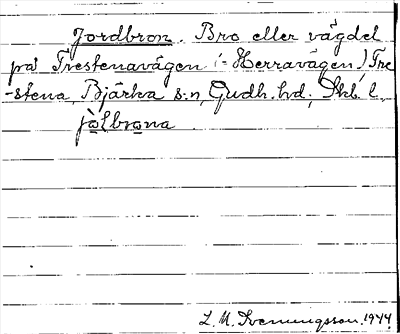 Jordbron. Bro eller vägdel
på Trestenavägen (= Herravägen) Tre
-stena, Bjärka s:n, Gudh. hd., Skb. l.
jo̤lbro̤na
L. M. Svenungsson. 1944.